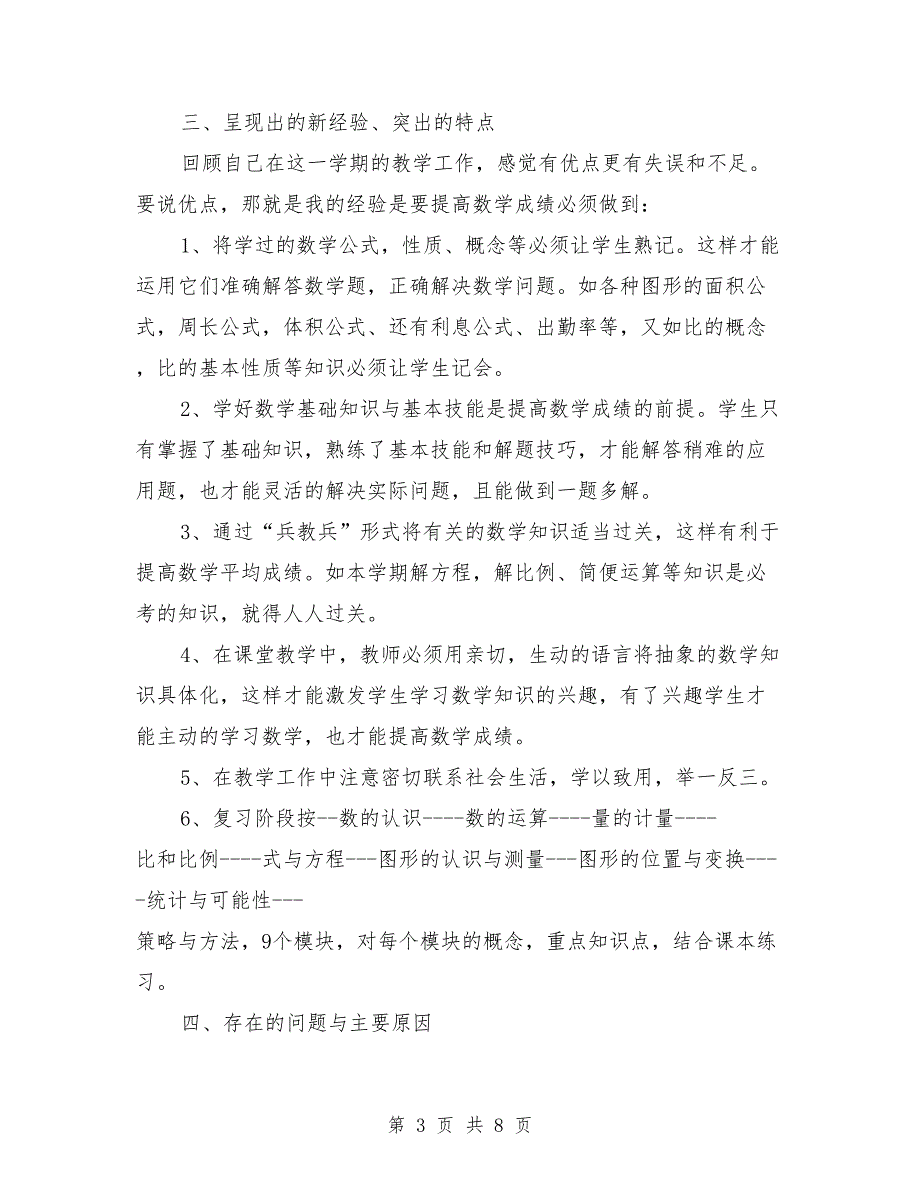 三、呈现出的新经验、突出的特点
回顾自己在这一学期的教学工作，感觉有优点更有失误和不足。
要说优点，那就是我的经验是要提高数学成绩必须做到：
1、将学过的数学公式，性质、概念等必须让学生熟记。这样才能
运用它们准确解答数学题，正确解决数学问题。如各种图形的面积公
式，周长公式，体积公式、还有利息公式、出勤率等，又如比的概念
，比的基本性质等知识必须让学生记会。
2、学好数学基础知识与基本技能是提高数学成绩的前提。学生只
有掌握了基础知识，熟练了基本技能和解题技巧，才能解答稍难的应
用题，也才能灵活的解决实际问题，且能做到一题多解。
3、通过“兵教兵”形式将有关的数学知识适当过关，这样有利于
提高数学平均成绩。如本学期解方程，解比例、简便运算等知识是必
考的知识，就得人人过关。
4、在课堂教学中，教师必须用亲切，生动的语言将抽象的数学知
识具体化，这样才能激发学生学习数学知识的兴趣，有了兴趣学生才
能主动的学习数学，也才能提高数学成绩。
5、在教学工作中注意密切联系社会生活，学以致用，举一反三。
6、复习阶段按--数的认识----数的运算----量的计量----
比和比例----式与方程---图形的认识与测量---图形的位置与变换---
-统计与可能性---
策略与方法，9个模块，对每个模块的概念，重点知识点，结合课本练
习。
四、存在的问题与主要原因
第 3 页 共 8 页